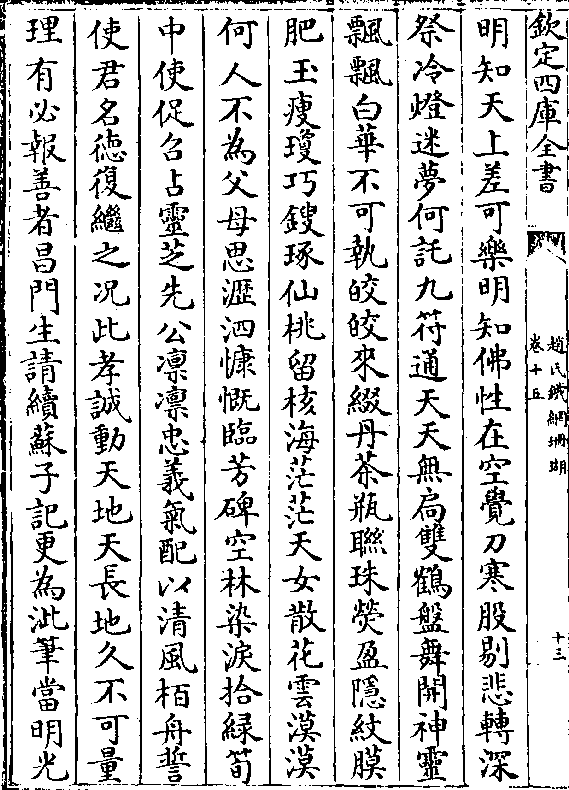 欽定四庫全書
趙氏鐵網珊瑚
卷十五
十三
明知天上差可樂明知佛性在空覺刀寒股剔悲轉深
祭冷燈迷夢何託九符通天天無扃雙鶴盤舞開神靈
飄飄白華不可執皎皎來綴丹荼瓶聯珠熒盈隱紋膜
肥玉瘦瓊巧鎪琢仙桃留核海茫茫天女散花雲漠漠
何人不為父母思瀝泗慷慨臨芳碑空林染淚拾緑筍
中使促召占靈芝先公凛凛忠義氣配以清風栢舟誓
使君名徳復繼之况此孝誠動天地天長地久不可量
理有必報善者昌門生請續蘇子記更為泚筆當明光